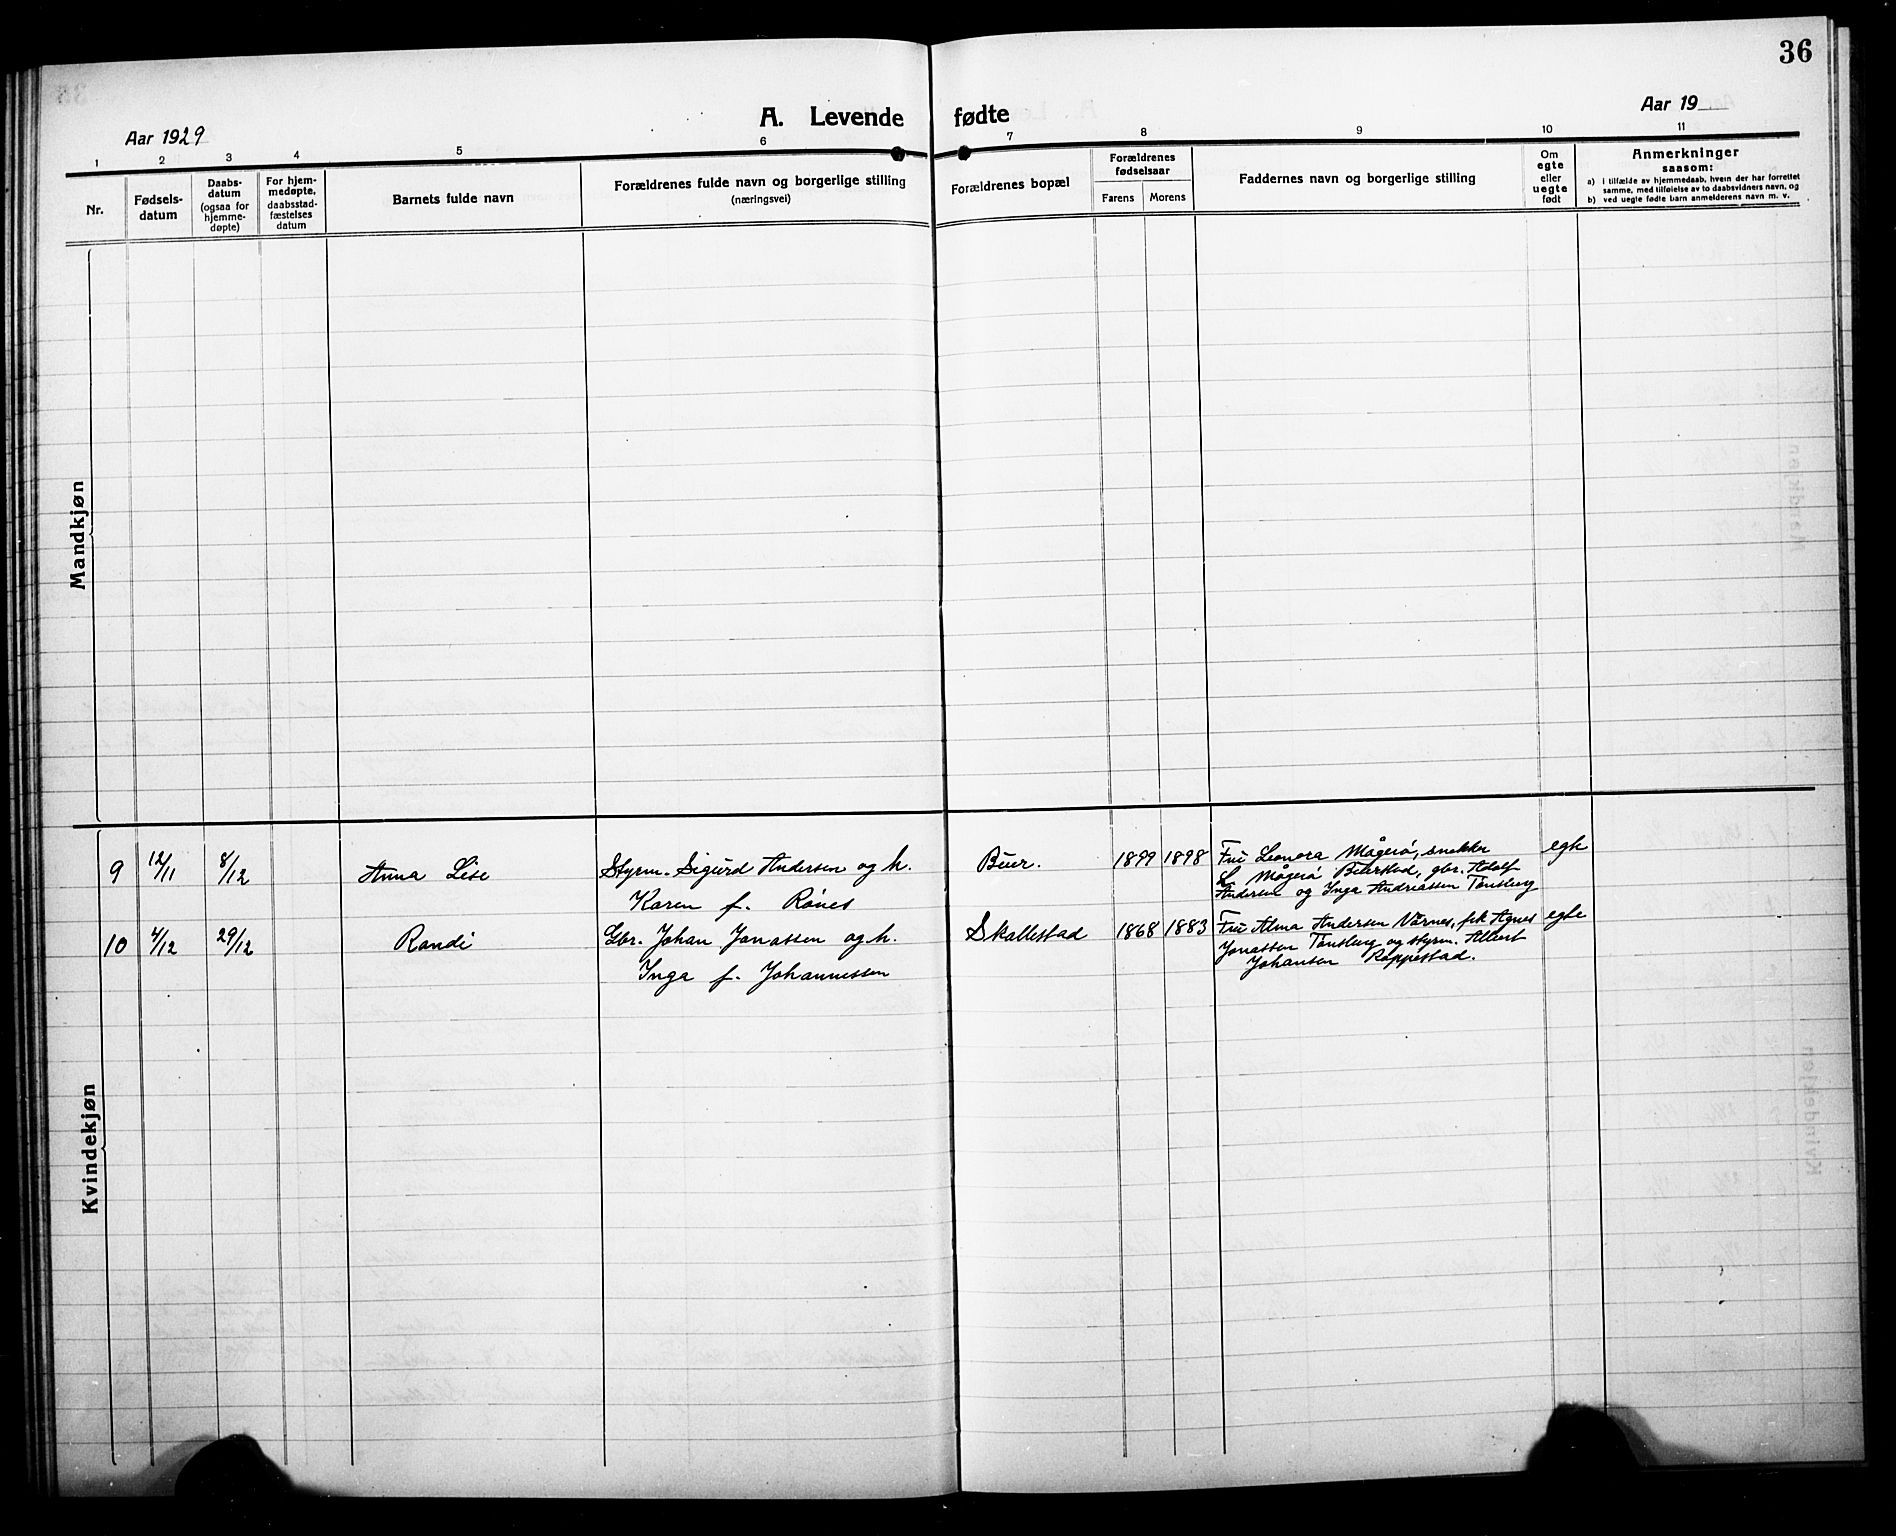 36
A. Levende fødte
Aar 1929
Aar 19
1 2 3 4 5 6 7 8 9 10 11
Nr.
Fødsels-
datum
Daabs-
datum
(ogsaa for
hjemme-
døpte)
For hjem-
medøpte,
daabsstad-
fæstelses
datum
Barnets fulde navn
Forældrenes fulde navn og borgerlige stilling
(næringsvei)
Forældrenes bopæl
Forældrenes
fødselsaar
Farens Morens
Faddernes navn og borgerlige stilling
Om
egte
eller
uegte
født
Anmerkninger
saasom:
a) i tilfælde av hjemmedaab, hvem der har forrettet
samme, med tilføielse av to daabsvidners navn, og
b) ved uegte fødte barn anmelderens navn m. v.
Mandkjøn
Kvindekjøn
9 12/11 8/12 Anna Lise
Styrm. Sigurd Andersen og h.
Karen f. Rønes
Buer. 1899 1898
Fru Leonora Mågerø, snekker
L. Mågerø Buerstad, gbr. Adolf
Andersen og Inga Andreassen Tønsberg
egte
10 4/12 29/12 Randi
Gbr. Johan Jonassen og h.
Inga f. Johannessen
Skallestad 1868 1883
Fru Alma Andersen Vårnes, frk Agnes
Jonassen Tønsberg og styrm. Albert
Johansen Roppestad.
egte